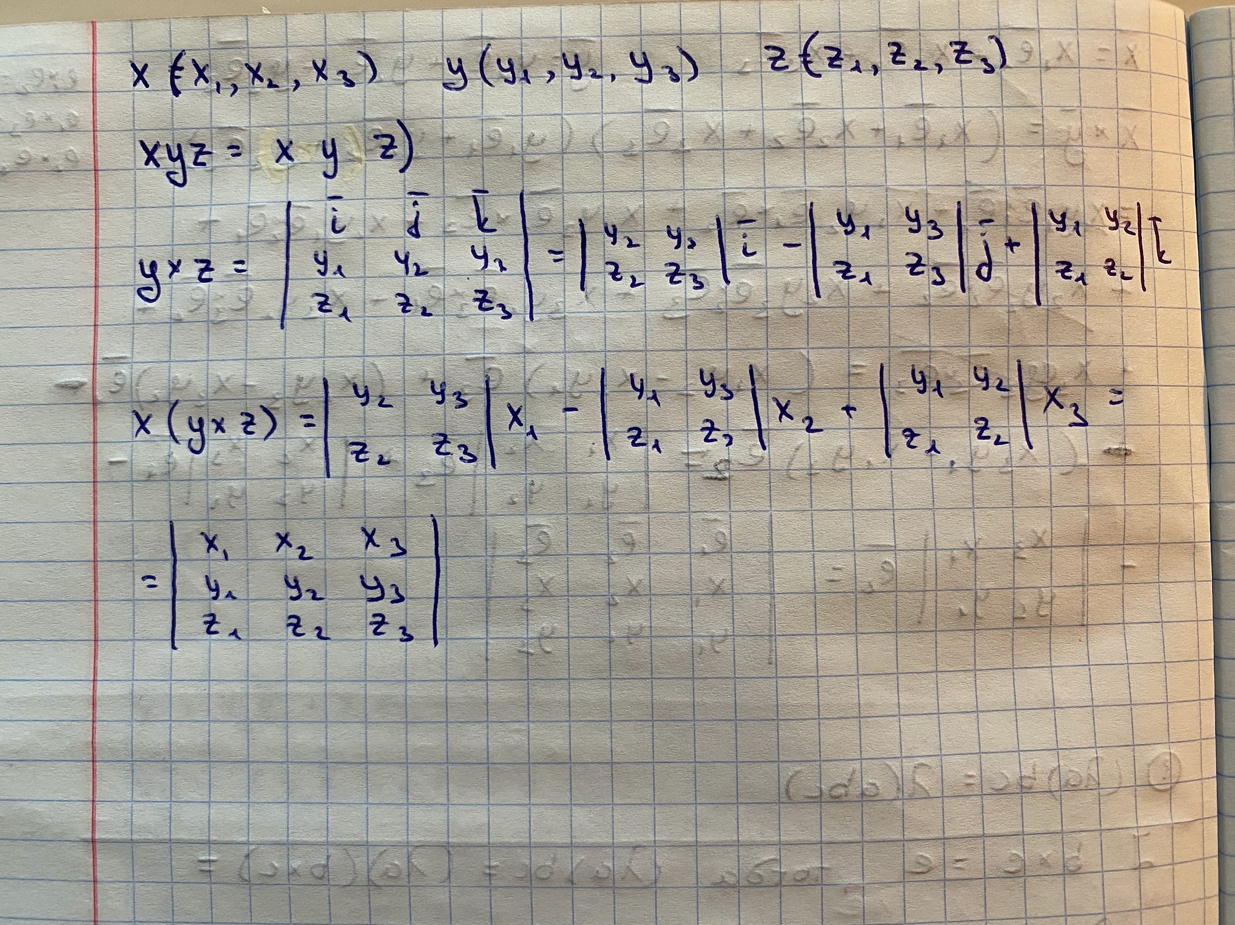 x (x₁, x₂, x₃) y (y₁, y₂, y₃) z (z₁, z₂, z₃)
xyz = x y z)
y × z = | i̅ j̅ k̅ ; y₁ y₂ y₃ ; z₁ z₂ z₃ | = | y₂ y₃ ; z₂ z₃ | i̅ - | y₁ y₃ ; z₁ z₃ | j̅ + | y₁ y₂ ; z₁ z₂ | k̅
x (y × z) = | y₂ y₃ ; z₂ z₃ | x₁ - | y₁ y₃ ; z₁ z₃ | x₂ + | y₁ y₂ ; z₁ z₂ | x₃ =
= | x₁ x₂ x₃ ; y₁ y₂ y₃ ; z₁ z₂ z₃ |